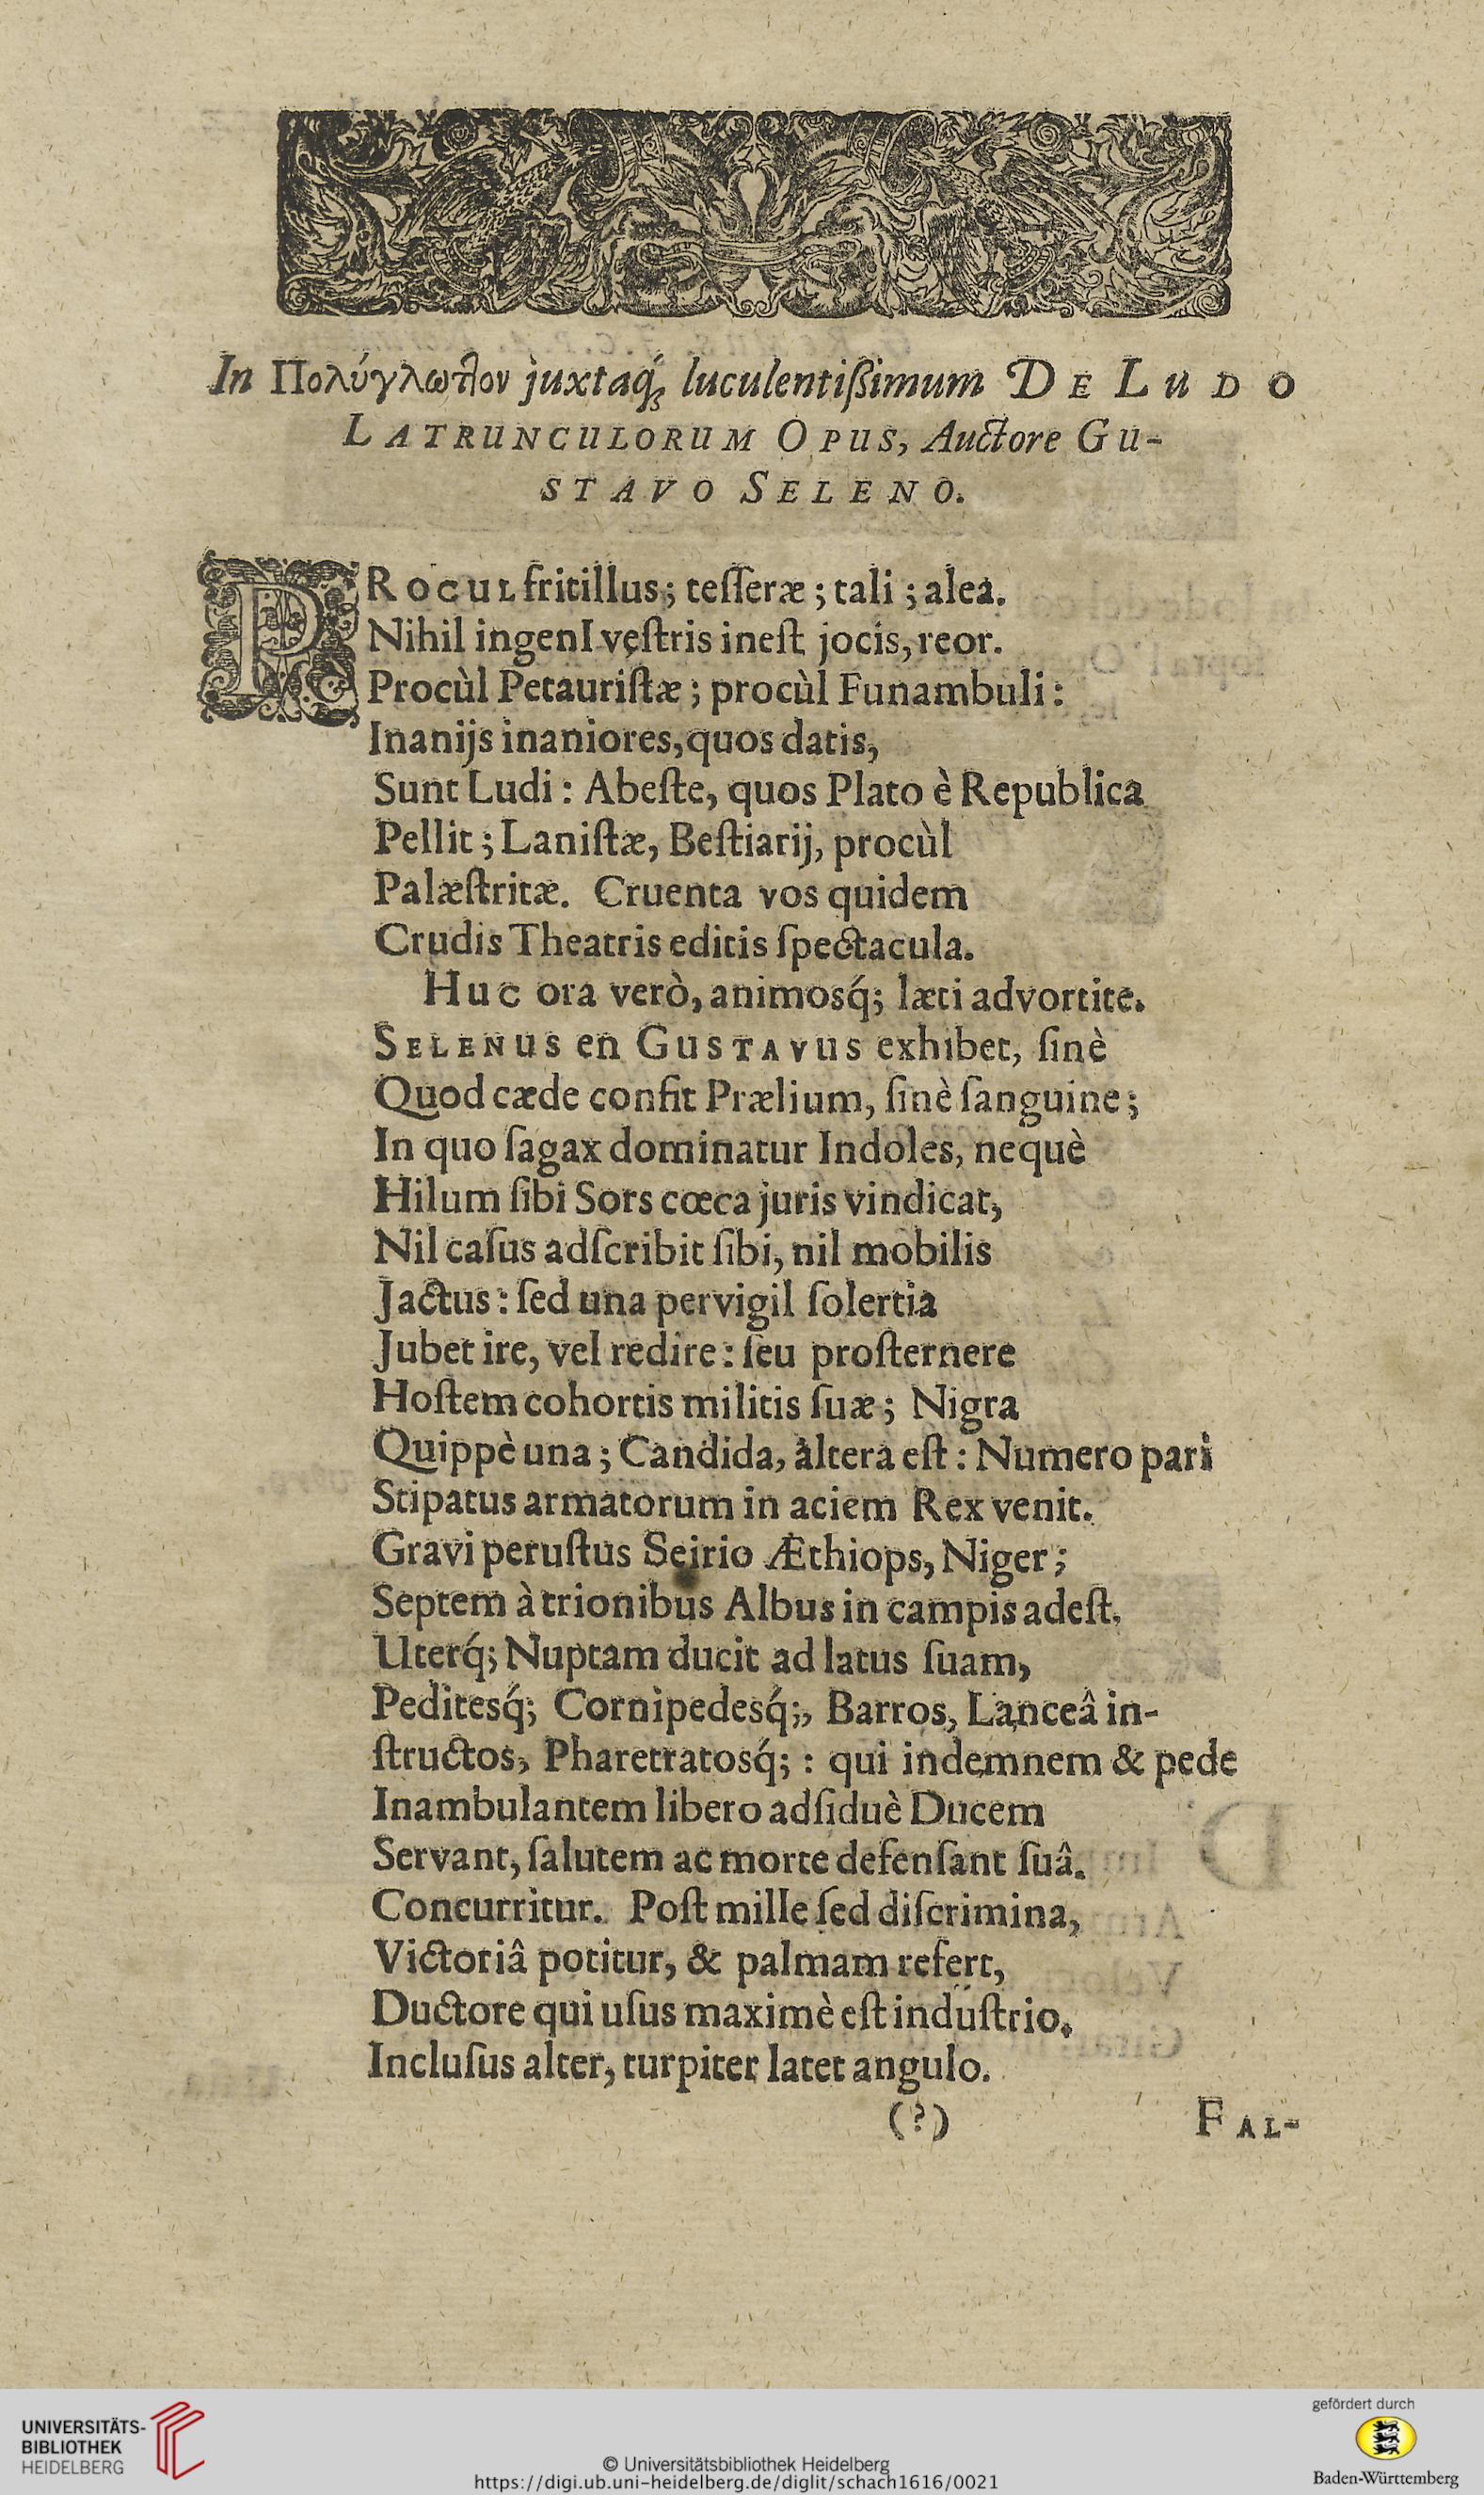 In Πολύγλωτ]ον juxtaq́; luculentißimum DE LUDO
LATRUNCULORUM OPUS, Auctore GU-
STAVO SELENO.
PROCUL fritillus; teſſeræ; tali; alea.
Nihil ingenI veſtris ineſt jocis, reor.
Procùl Petauriſtæ; procùl Funambuli:
Inanijs inaniores, quos datis,
Sunt Ludi: Abeſte, quos Plato è Republica
Pellit; Laniſtæ, Beſtiarij, procùl
Palæſtritæ. Cruenta vos quidem
Crudis Theatris editis ſpectacula.
Huc ora verò, animosq́; læti advortite.
SELENUS en GUSTAVUS exhibet, ſinè
Quod cæde confit Prælium, ſinè ſanguine;
In quo ſagax dominatur Indoles, nequè
Hilum ſibi Sors cœca juris vindicat,
Nil caſus adſcribit ſibi, nil mobilis
Jactus: ſed una pervigil ſolertia
Jubet ire, vel redire: ſeu proſternere
Hoſtem cohortis militis ſuæ; Nigra
Quippè una; Candida, altera eſt: Numero pari
Stipatus armatorum in aciem Rex venit.
Gravi peruſtus Seirio Æthiops, Niger;
Septem à trionibus Albus in campis adeſt.
Uterq́; Nuptam ducit ad latus ſuam,
Peditesq́; Cornipedesq́;, Barros, Lanceâ in-
ſtructos, Pharetratosq́; : qui indemnem & pede
Inambulantem libero adſiduè Ducem
Servant, ſalutem ac morte defenſant ſuâ.
Concurritur. Poſt mille ſed diſcrimina,
Victoriâ potitur, & palmam refert,
Ductore qui uſus maximè eſt induſtrio.
Incluſus alter, turpiter latet angulo.
(?)
FAL-
UNIVERSITÄTS-
BIBLIOTHEK
HEIDELBERG
© Universitätsbibliothek Heidelberg
https://digi.ub.uni-heidelberg.de/diglit/schach1616/0021
gefördert durch
Baden-Württemberg